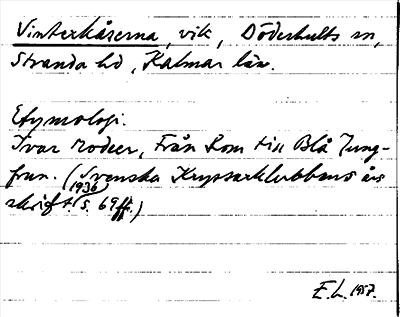 Vinterkåserna, vik, Döderhults sn,
Stranda hd, Kalmar län.
Etymologi.
Ivar Modeer, Från Lom till Blå Jung-
frun. (Svenska Kryssarklubbens års
skrift 1936 s. 69 ff.)
E. L. 1957.